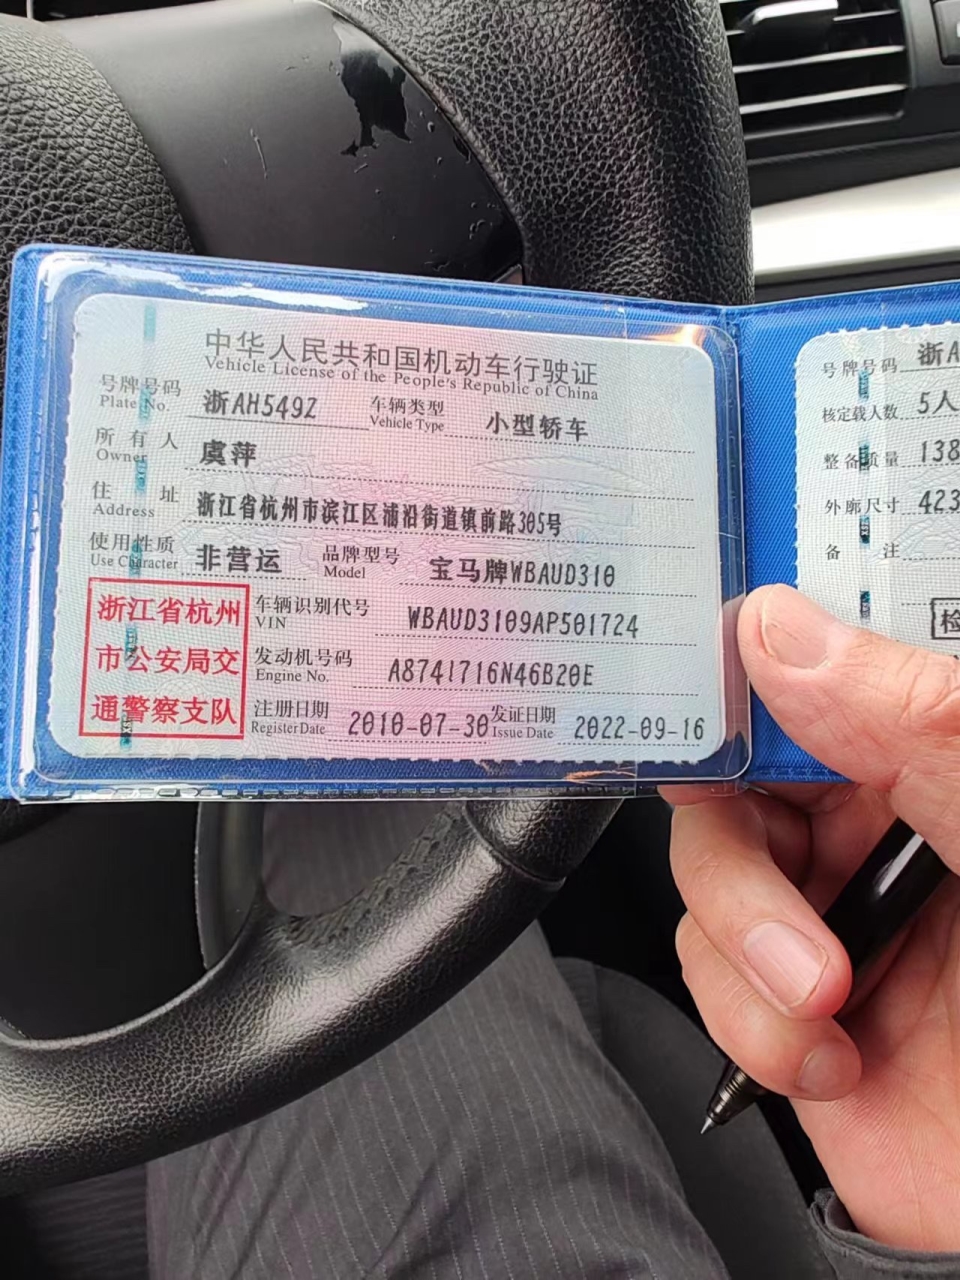 中华人民共和国机动车行驶证
Vehicle License of the People's Republic of China
号牌号码 浙AH549Z 车辆类型 小型轿车
Plate No. Vehicle Type
所有人 虞萍
Owner
住址 浙江省杭州市滨江区浦沿街道镇前路305号
Address
使用性质 非营运 品牌型号 宝马牌WBAUD310
Use Character Model
浙江省杭州
市公安局交
通警察支队
车辆识别代号 WBAUD3109AP501724
VIN
发动机号码 A8741716N46B20E
Engine No.
注册日期 2010-07-30 发证日期 2022-09-16
Register Date Issue Date
号牌号码 浙A
核定载人数 5人
整备质量 138
外廓尺寸 423
备注
检